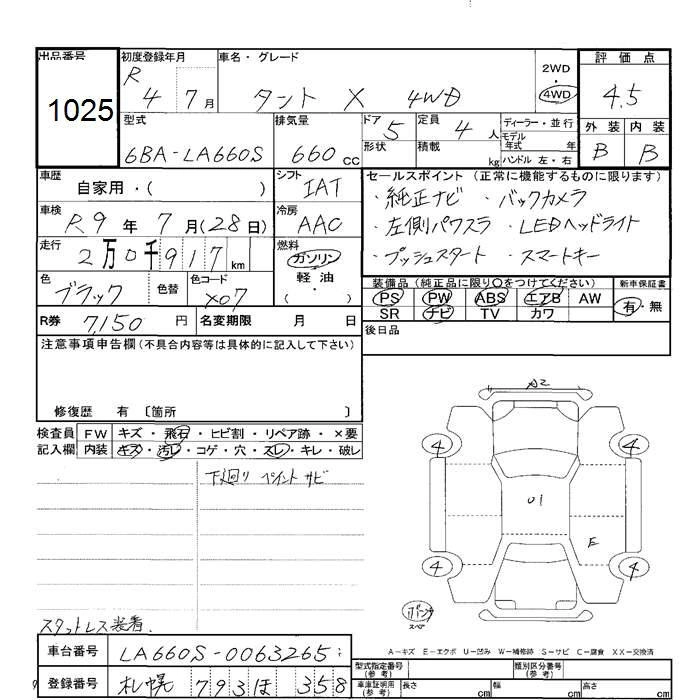 出品番号 初度登録年月 車名・グレード 評価点
1025 R 4 7月 タント X 4WD 2WD・4WD 4.5
型式 排気量 ドア 定員 ディーラー・並行 外装 内装
6BA-LA660S 660cc 5 4人 モデル年式 年 B B
形状 積載 kg ハンドル 左・右
車歴 自家用・( ) シフト IAT セールスポイント(正常に機能するものに限ります)
・純正ナビ ・バックカメラ
車検 R9年7月(28日) 冷房 AAC ・左側パワスラ ・LEDヘッドライト
走行 2万0千917km 燃料 ガソリン・軽油・( ) ・プッシュスタート ・スマートキー
色 ブラック 色替 色コード X07 装備品(純正品に限り○をつけてください) 新車保証書
PS PW ABS エアB AW 有・無
SR ナビ TV カワ
R券 7,150円 名変期限 月 日 後日品
注意事項申告欄(不具合内容等は具体的に記入して下さい)
修復歴 有 〔箇所 〕
検査員 FW キズ・飛石・ヒビ割・リペア跡・×要
記入欄 内装 キズ・汚レ・コゲ・穴・スレ・キレ・破レ
下廻り ペイント サビ
A2
4 4
U1
E
4 4
パンク
スペア
スタットレス装着.
A-キズ E-エクボ U-凹み W-補修跡 S-サビ C-腐食 XX-交換済
車台番号 LA660S-0063265 型式指定番号(参考) 類別区分番号(参考)
登録番号 札幌 793ほ 358 車庫証明用(参考) 長さ cm 幅 cm 高さ cm